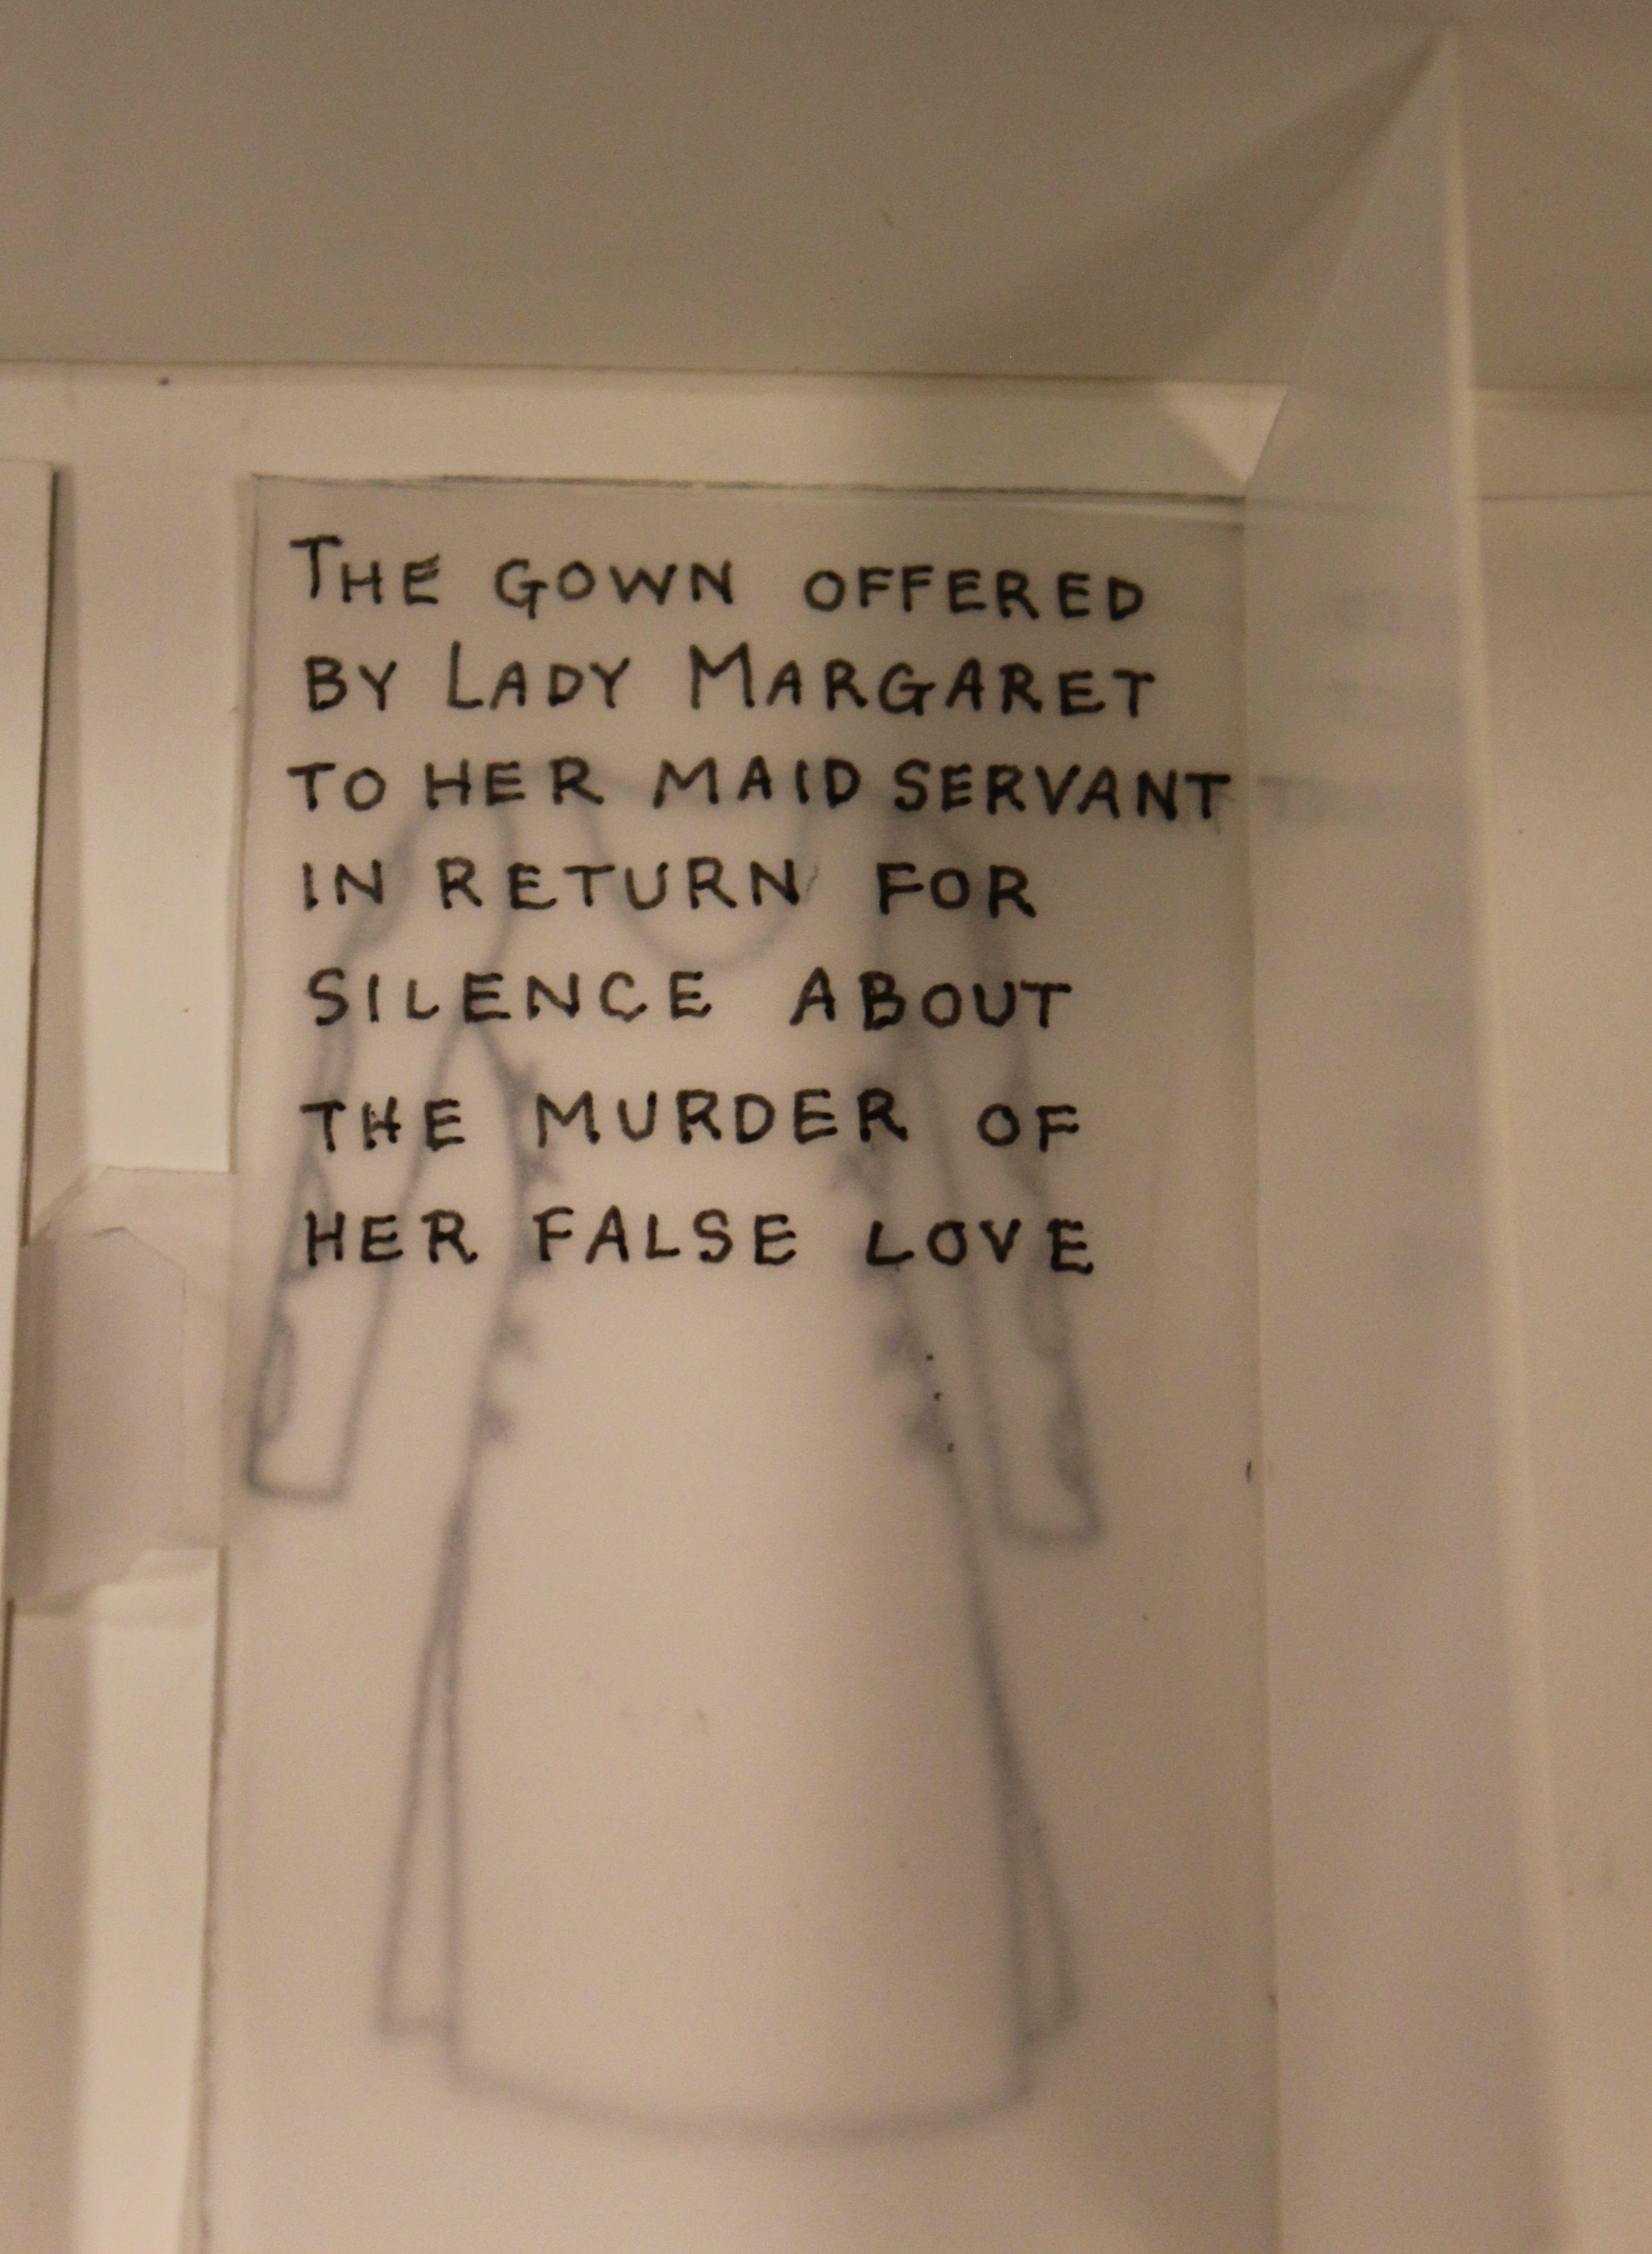 THE GOWN OFFERED
BY LADY MARGARET
TO HER MAID SERVANT
IN RETURN FOR
SILENCE ABOUT
THE MURDER OF
HER FALSE LOVE